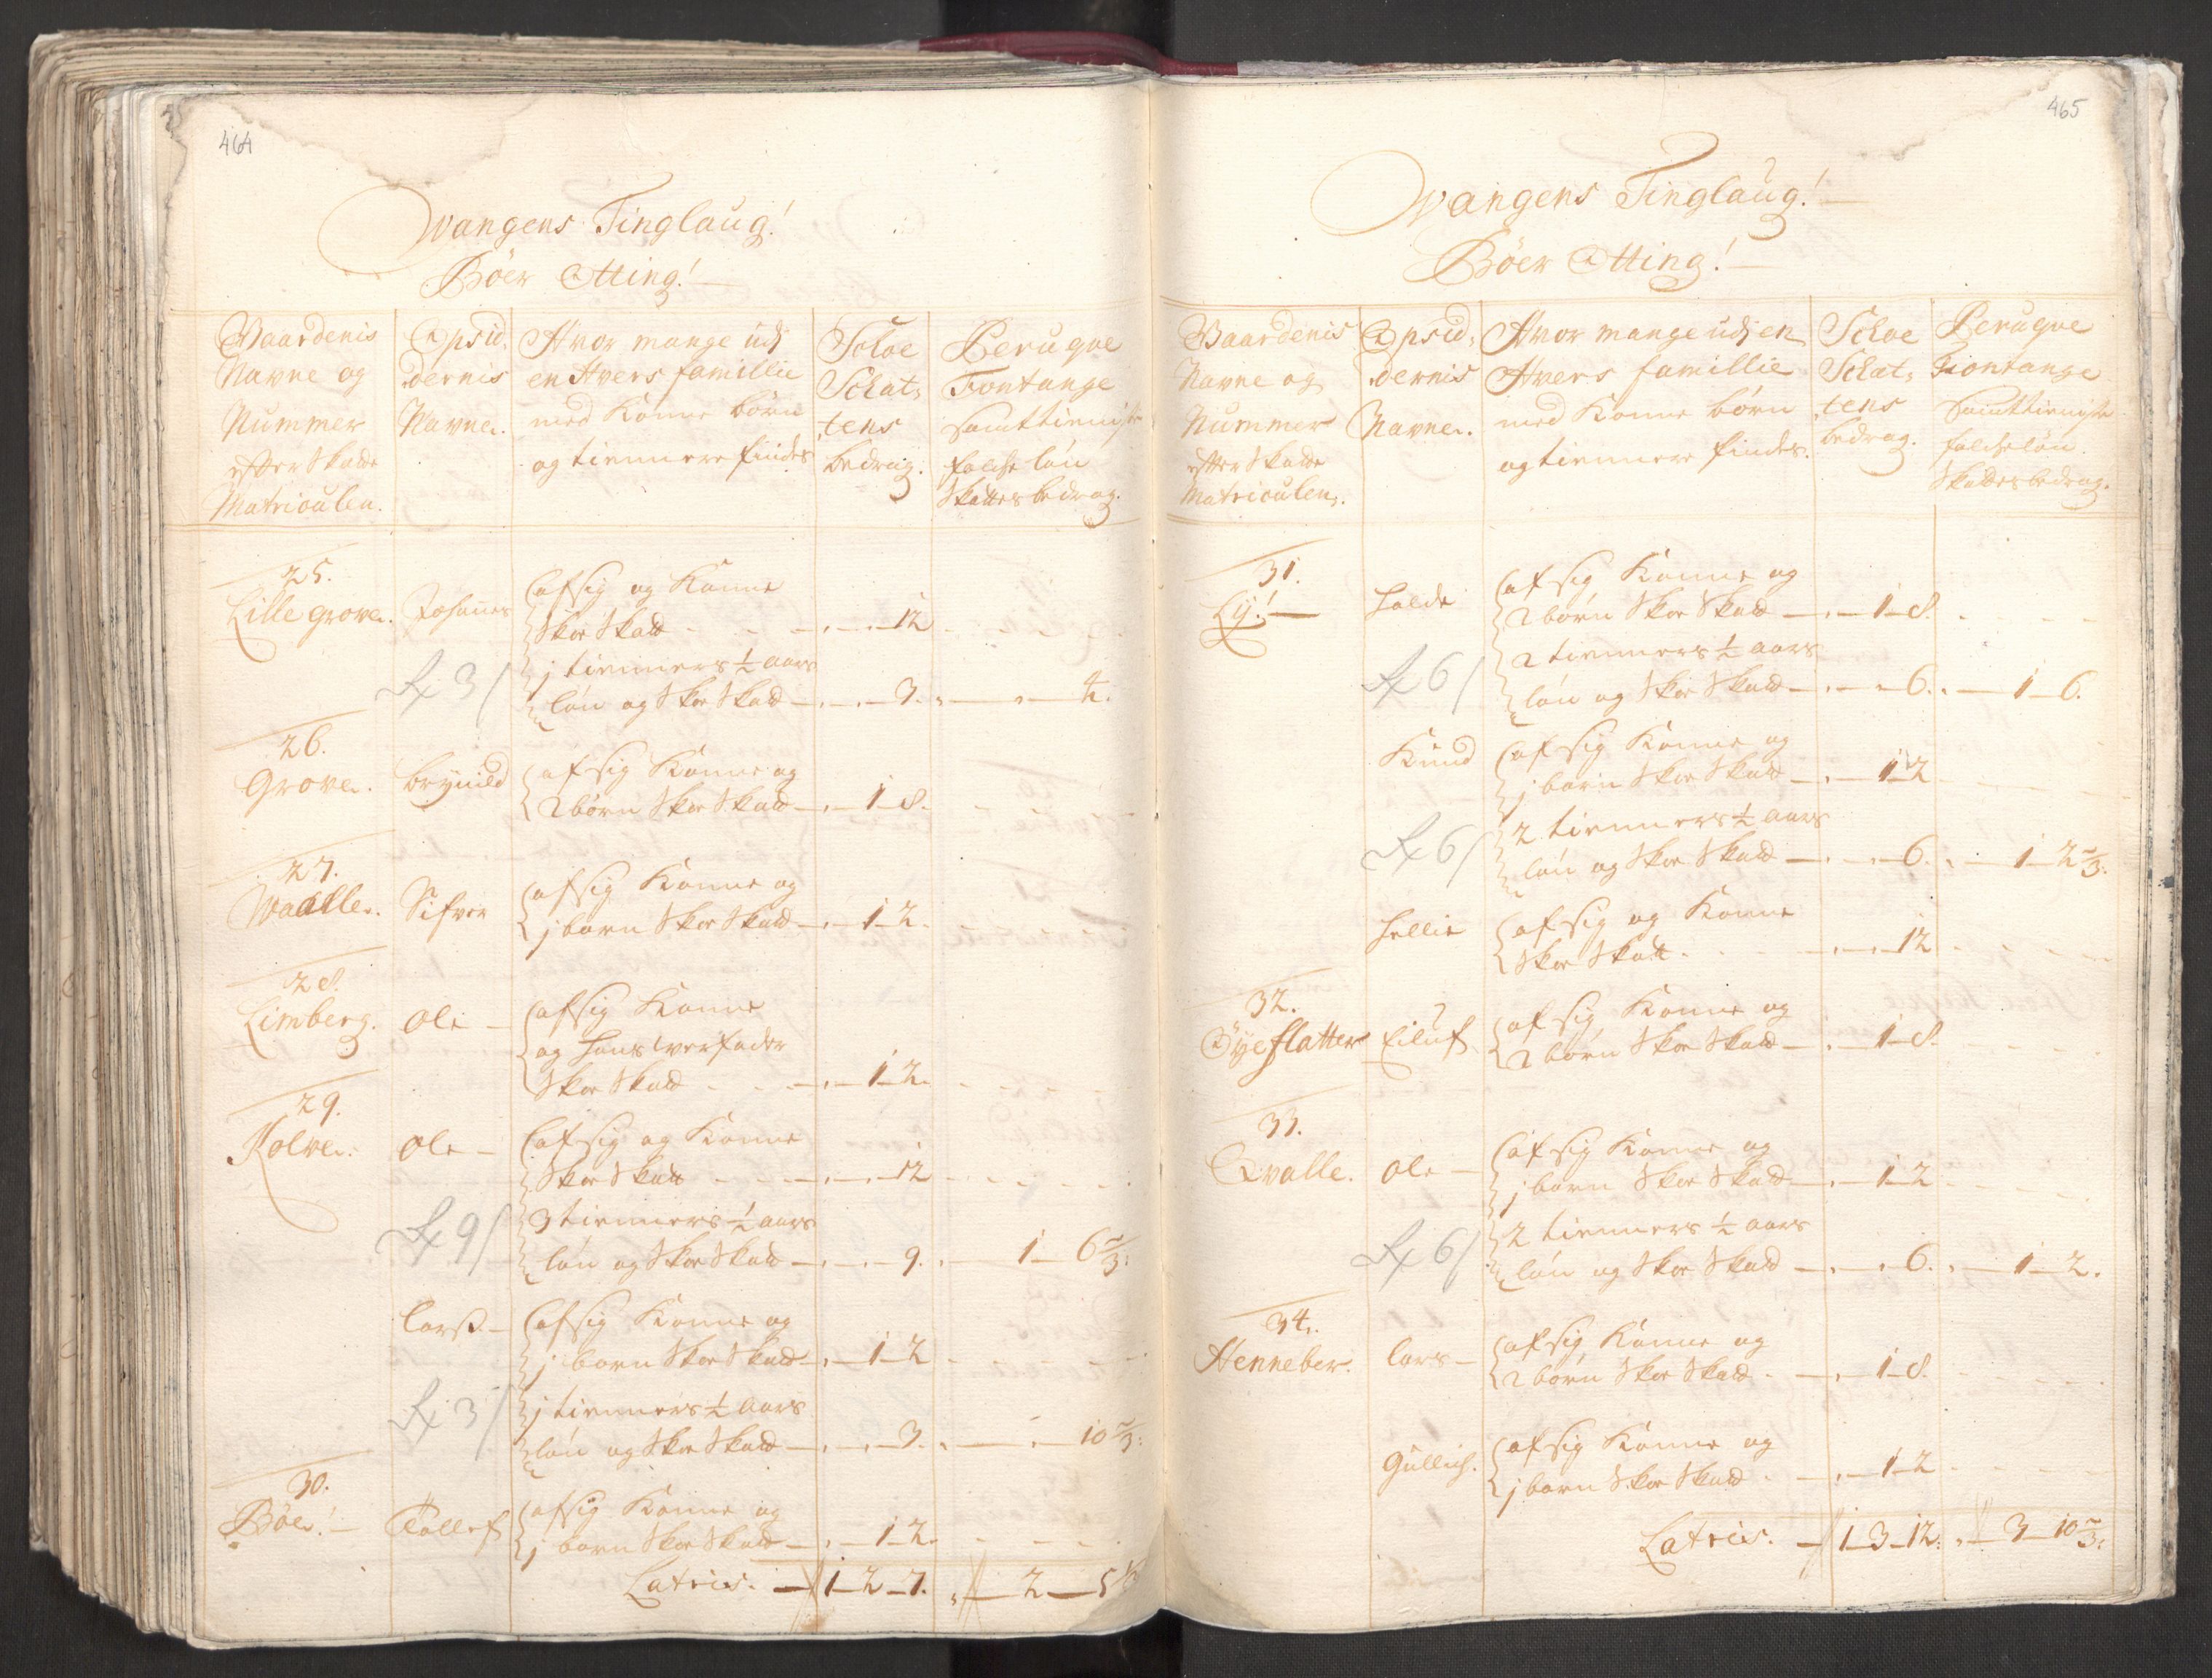 464
Wangens Tinglaug!
Böer Otting!
Gaardenis Navne og Nummer efter Skatte Matriculen.
Opsiddernis Navne.
Hvor mange udj en Hvers famillie med Konne børn og tiennere findes
Schoe Schattens bedrag.
Peruqve Fontange samt tieniste folchs løn Skattes bedrag.
25.
Lille grove. Johannes
afsig og Konne
Skoe Skatt - 12
R 3/
j tienners ½ aars
løn og Skoe Skatt - 3. - 4.
26.
Grove. Brynild
af sig Konne og
2 børn Skoe Skatt - 1-8.
27.
Waalle. Sifver
afsig Konne og
j barn Skoe Skatt - 1-2.
28.
Limberg. Ole
afsig Konne
og hans verfader
Skoe Skatt - 1-2.
29.
Kolve. Ole
af sig og Konne
Skoe Skatt - 12
R 9/
3 tienners ½ aars
løn og Skoe Skatt - 9. - 1-6 2/3.
Larß
afsig Konne og
j barn Skoe Skatt - 1-2
R 3/
j tienners ½ aars
løn og Skoe Skatt - 3. - 10 2/3.
30.
Böe! Tollef
afsig Konne og
j barn Skoe Skatt - 1-2.
Latris. - 1-2-7. 2-5 1/3
465
Wangens Tinglaug!
Böer Otting!
Gaardenis Navne og Nummer efter Skatte Matriculen.
Opsiddernis Navne.
Hvor mange udj en Hvers famillie med Konne børn og tiennere findes.
Schoe Schattens bedrag.
Peruqve Fontange samt tieniste folchs løn Skattes bedrag.
31.
Ly! Halde
af sig Konne og
2 børn Skoe Skatt - 1-8.
R 6/
2 tienners ½ aars
løn og Skoe Skatt - 6. - 1-6.
Knud
af sig Konne og
j barn Skoe Skatt - 1-2
R 6/
2 tienners ½ aars
løn og Skoe Skatt - 6. - 1-2 2/3.
Hellie
af sig og Konne
Skoe Skatt. - 12
32.
Øyeflatter Eiluf
af sig Konne og
2 børn Skoe Skatt - 1-8.
33.
Qvalle. Ole
af sig Konne og
j barn Skoe Skatt - 1-2
R 6/
2 tienners ½ aars
løn og Skoe Skatt - 6. - 1-2.
34.
Henneber. Lars
af sig Konne og
2 børn Skoe Skatt. - 1-8.
Gullich.
af sig Konne og
j barn Skoe Skatt. - 1-2
Latris. - 1-3-12. 3-10 2/3.